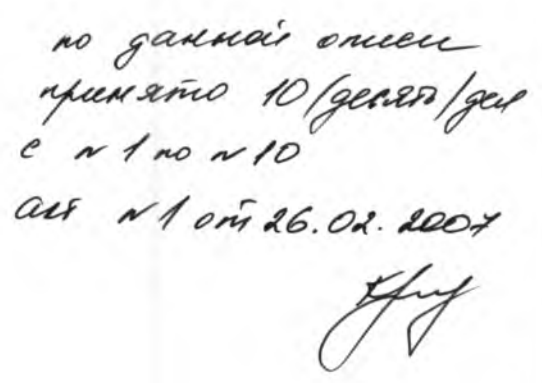 по данной описи
принято 10 /десять/ дел
с № 1 по № 10
акт № 1 от 26.02.2007